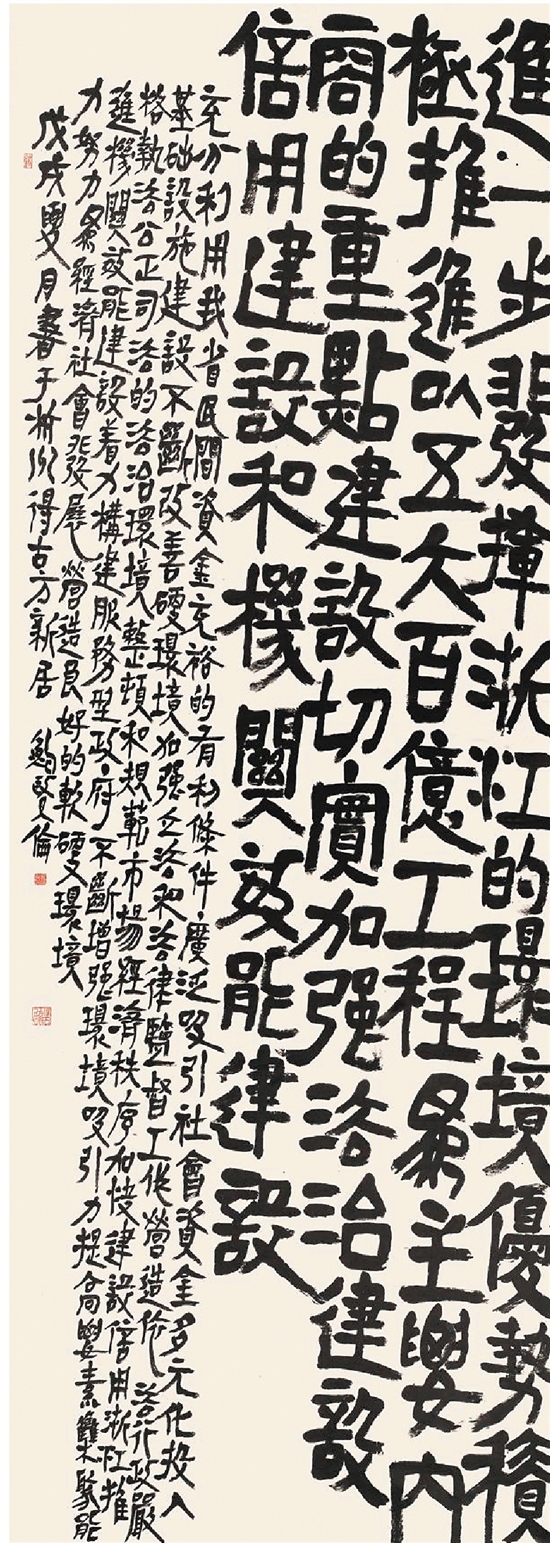 進一步發揮浙江的環境優勢積
極推進以五大百億工程爲主要內
容的重點建設切實加强法治建設
信用建設和機關效能建設
充分利用我省民間資金充裕的有利條件廣泛吸引社會資金多元化投入
基礎設施建設不斷改善硬環境加强立法和法律監督工作營造依法行政嚴
格執法公正司法的法治環境整頓和規範市場經濟秩序加快建設信用浙江推
進機關效能建設着力構建服務型政府不斷增强環境吸引力提高要素集聚能
力努力爲經濟社會發展營造良好的軟硬環境
戊戌夏月書于杭州得古方新居 鮑賢倫